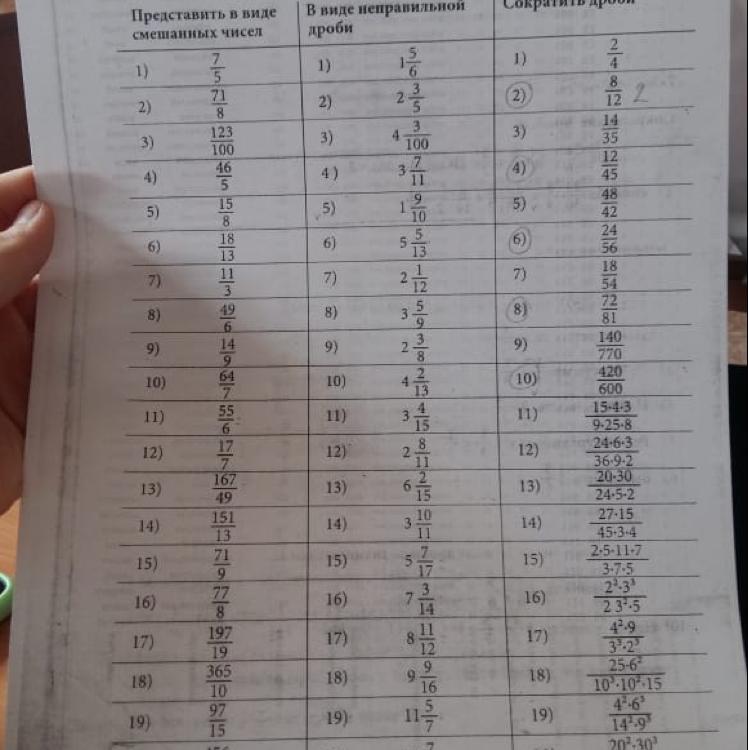 Представить в виде смешанных чисел | В виде неправильной дроби | Сократить дроби
1) 7/5 | 1) 1 5/6 | 1) 2/4
2) 71/8 | 2) 2 3/5 | 2) 8/12 2
3) 123/100 | 3) 4 3/100 | 3) 14/35
4) 46/5 | 4) 3 7/11 | 4) 12/45
5) 15/8 | 5) 1 9/10 | 5) 48/42
6) 18/13 | 6) 5 5/13 | 6) 24/56
7) 11/3 | 7) 2 1/12 | 7) 18/54
8) 49/6 | 8) 3 5/9 | 8) 72/81
9) 14/9 | 9) 2 3/8 | 9) 140/770
10) 64/7 | 10) 4 2/13 | 10) 420/600
11) 55/6 | 11) 3 4/15 | 11) 15·4·3/9·25·8
12) 17/7 | 12) 2 8/11 | 12) 24·6·3/36·9·2
13) 167/49 | 13) 6 2/15 | 13) 20·30/24·5·2
14) 151/13 | 14) 3 10/11 | 14) 27·15/45·3·4
15) 71/9 | 15) 5 7/17 | 15) 2·5·11·7/3·7·5
16) 77/8 | 16) 7 3/14 | 16) 2³·3³/2 3²·5
17) 197/19 | 17) 8 11/12 | 17) 4²·9/3³·2³
18) 365/10 | 18) 9 9/16 | 18) 25·6²/10³·10²·15
19) 97/15 | 19) 11 5/7 | 19) 4²·6³/14²·9³
7 | 20²·30³